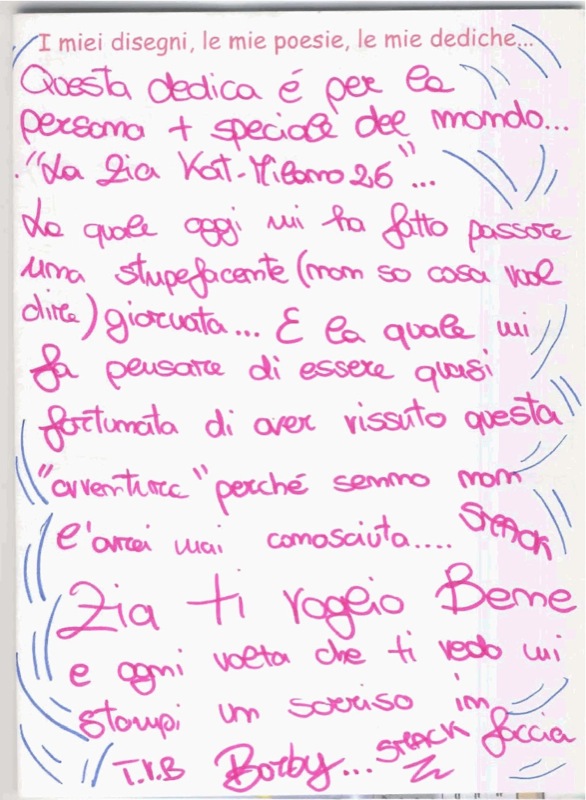 I miei disegni, le mie poesie, le mie dediche...
Questa dedica é per la
persona + speciale del mondo...
"La Zia Kat-Milano 26"...
La quale oggi mi ha fatto passare
una stupefacente (non so cosa vuol
dire) giornata... E la quale mi
fa pensare di essere quasi
fortunata di aver vissuto questa
"avventura" perché senno non
l'avrei mai conosciuta.... SMACK
Zia ti voglio Bene
e ogni volta che ti vedo mi
stampi un sorriso in
faccia
T.V.B Borby... SMACK